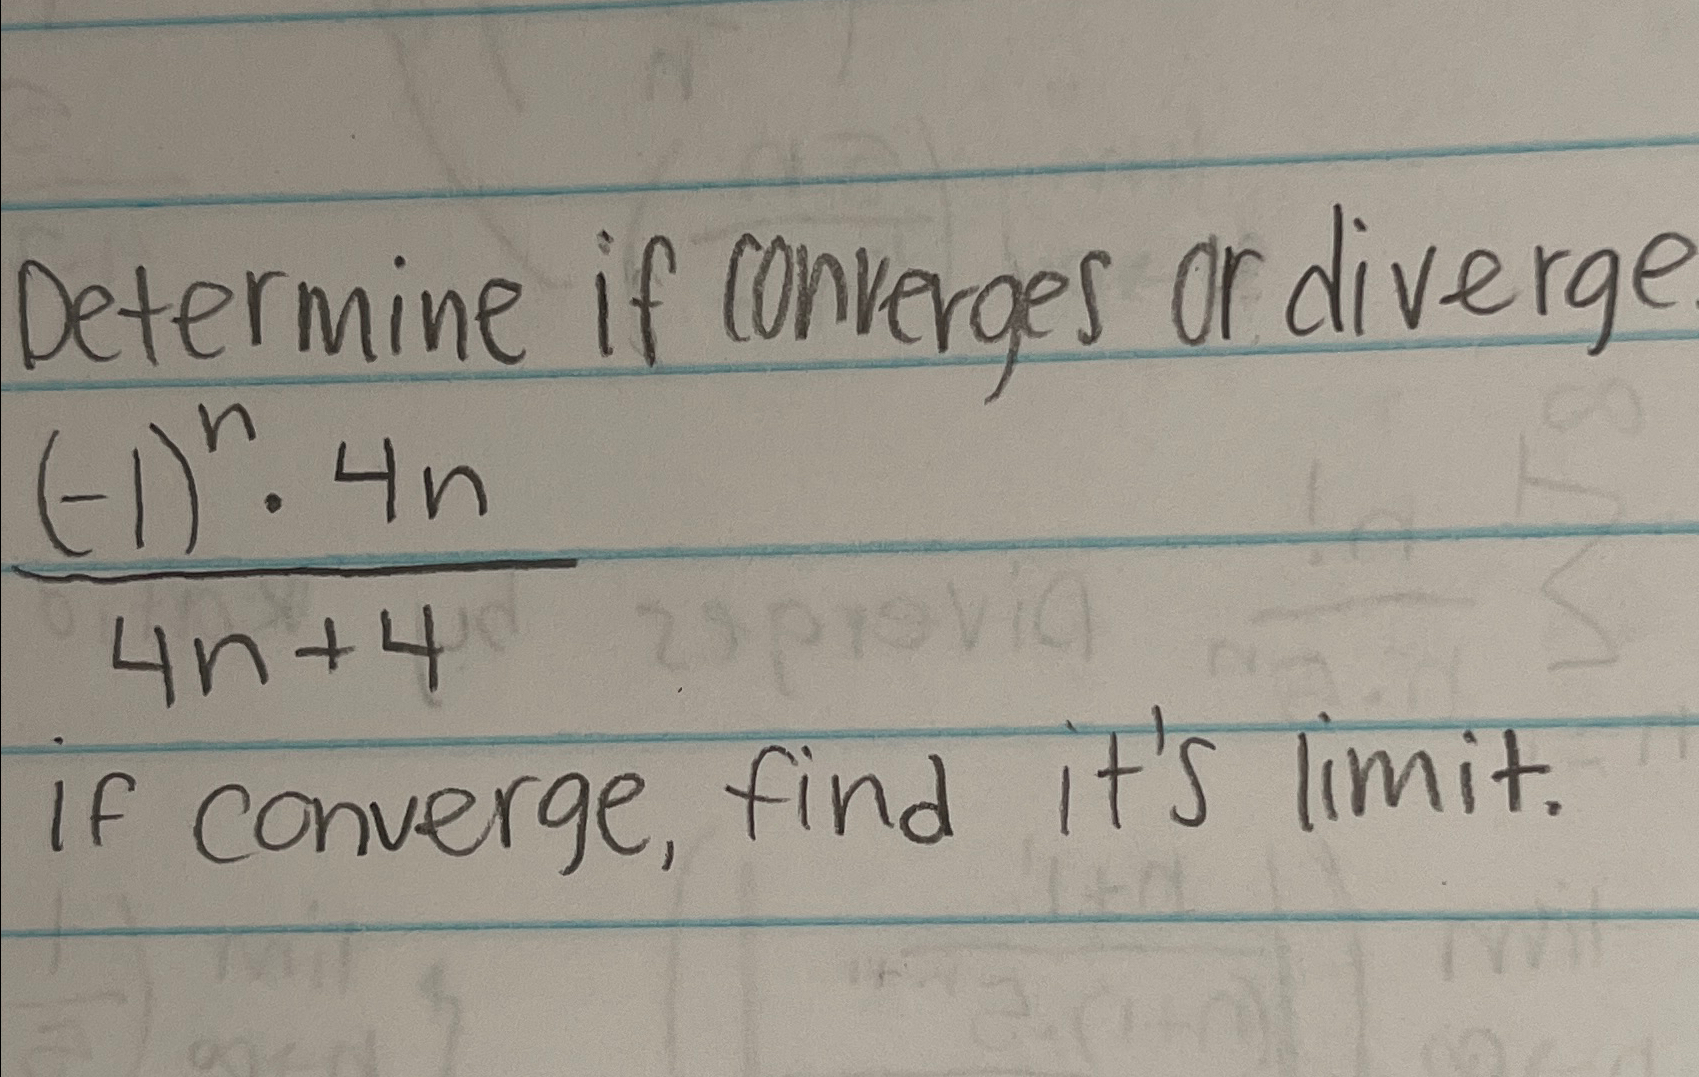 Determine if converges or diverge.
(-1)^n · 4n
4n+4
if converge, find it's limit.